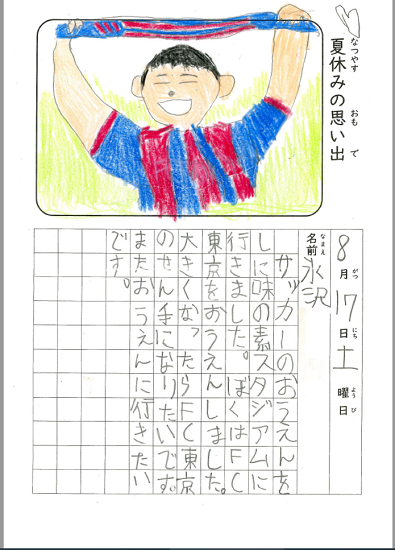 夏休みの思い出
なつやす おも で
8月17日土曜日
がつ にち よう び
名前 永沢
なまえ
サッカーのおうえんを
しに味の素スタジアムに
行きました。ぼくはFC
東京をおうえんしました。
大きくなったらFC東京
のせん手になりたいです。
またおうえんに行きたい
です。